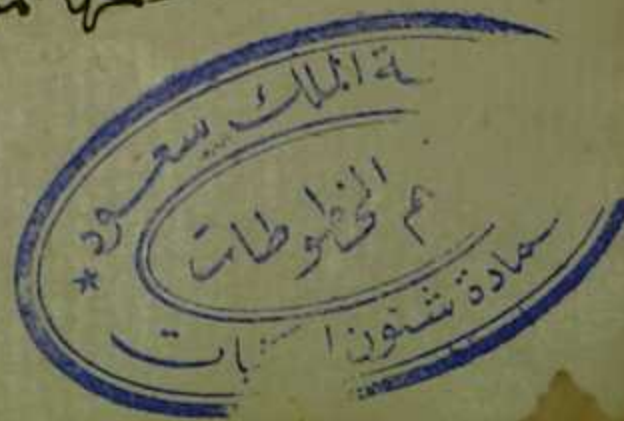 ـة الملك سعود *
ـم المخطوطات
ـمادة شئون ا
ـبات